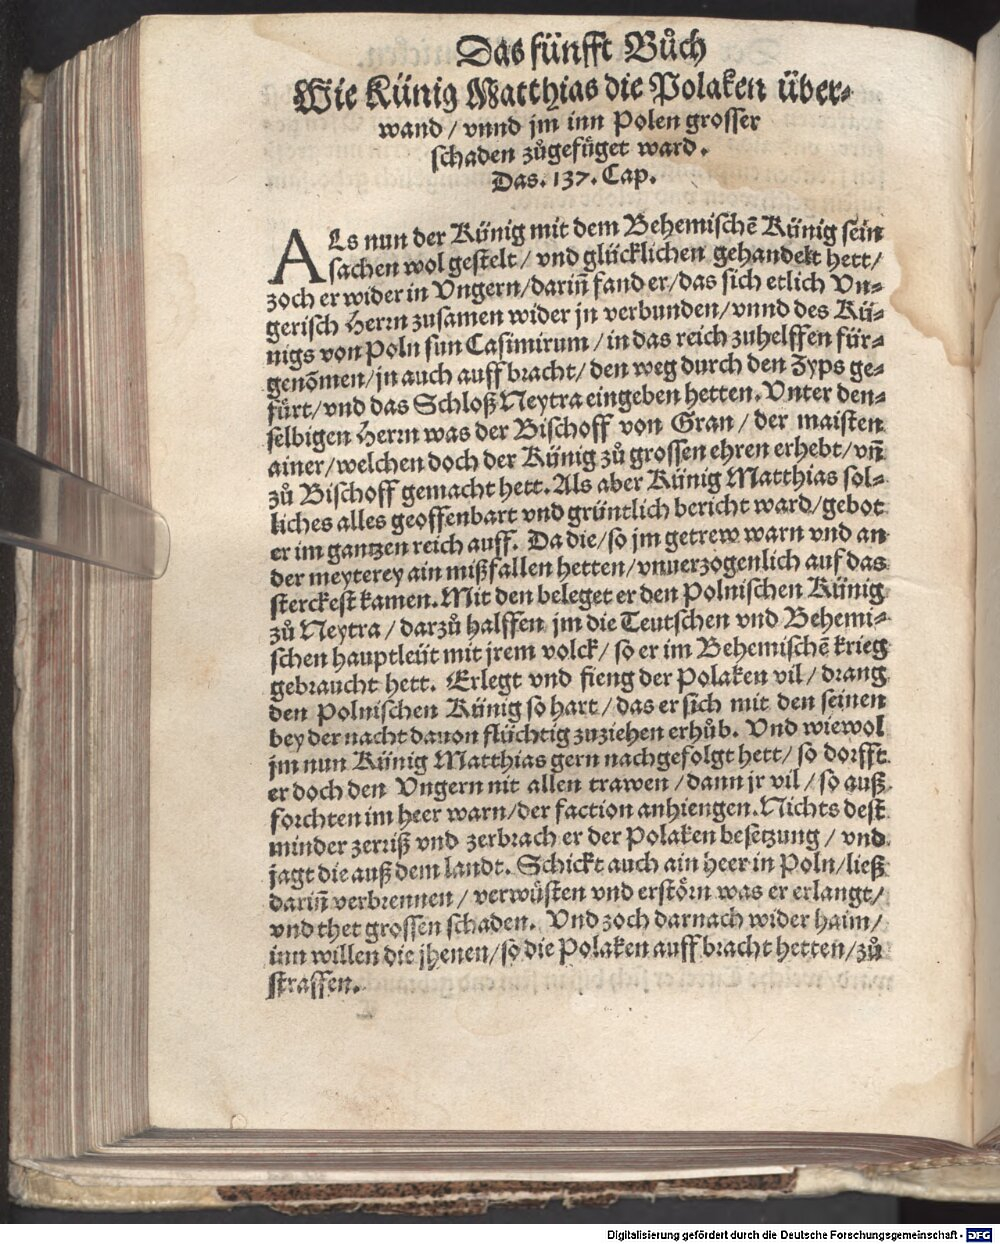 Das fünfft Bůch
Wie Künig Matthias die Polaken über-
wand / vnnd jm inn Polen grosser
schaden zůgefüget ward.
Das. 137. Cap.
ALs nun der Künig mit dem Behemischē Künig sein
sachen wol gestelt / vnd glücklichen gehandelt hett /
zoch er wider in Vngern / dariñ fand er / das sich etlich Vn-
gerisch Herrn zusamen wider jn verbunden / vnnd des Kü-
nigs von Poln sun Casimirum / in das reich zuhelffen für-
genom̄en / jn auch auff bracht / den weg durch den Zyps ge-
fürt / vnd das Schloß Neytra eingeben hetten. Vnter den-
selbigen Herrn was der Bischoff von Gran / der maisten
ainer / welchen doch der Künig zů grossen ehren erhebt / vñ
zů Bischoff gemacht hett. Als aber Künig Matthias sol-
liches alles geoffenbart vnd grüntlich bericht ward / gebot
er im gantzen reich auff. Da die / so jm getrew warn vnd an
der meyterey ain mißfallen hetten / vnuerzogenlich auf das
sterckest kamen. Mit den beleget er den Polnischen Künig
zů Neytra / darzů halffen jm die Teutschen vnd Behemi-
schen hauptleüt mit jrem volck / so er im Behemischē krieg
gebraucht hett. Erlegt vnd fieng der Polaken vil / drang
den Polnischen Künig so hart / das er sich mit den seinen
bey der nacht dauon flüchtig zuziehen erhůb. Vnd wiewol
jm nun Künig Matthias gern nachgefolgt hett / so dorfft
er doch den Vngern nit allen trawen / dann jr vil / so auß
forchten im heer warn / der faction anhiengen. Nichts dest
minder zerriß vnd zerbrach er der Polaken besetzung / vnd
jagt die auß dem landt. Schickt auch ain heer in Poln / ließ
dariñ verbrennen / verwüsten vnd erstörn was er erlangt /
vnd thet grossen schaden. Vnd zoch darnach wider haim /
inn willen die jhenen / so die Polaken auff bracht hetten / zů
straffen.
Digitalisierung gefördert durch die Deutsche Forschungsgemeinschaft - DFG